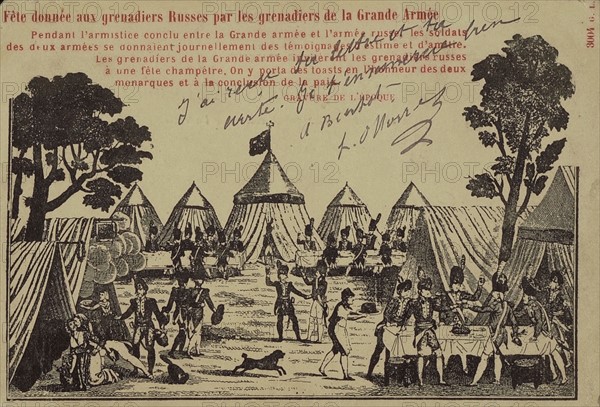 Fête donnée aux grenadiers Russes par les grenadiers de la Grande Armée
Pendant l'armistice conclu entre la Grande armée et l'armée russe, les soldats
des deux armées se donnaient journellement des témoignages d'estime et d'amitié.
Les grenadiers de la Grande armée invitèrent les grenadiers russes
à une fête champêtre, On y porta des toasts en l'honneur des deux
monarques et à la conclusion de la paix.
GRAVURE DE L'ÉPOQUE
3004 G. L.
J'ai reçu ta lettre et ta
carte. Je t'en
A Bientot
PHOTO12